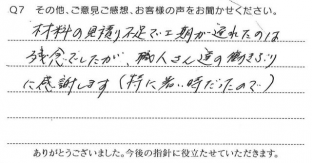 Q7 その他、ご意見ご感想、お客様の声をお聞かせください。
材料の見積り不足で工期が遅れたのは
残念でしたが、職人さん達の働きぶり
に感謝します(特に暑い時だったので)
ありがとうございました。今後の指針に役立たせていただきます。